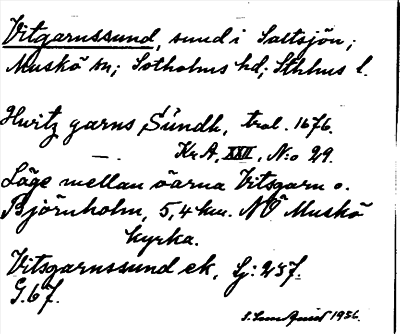 Vitgarnssund, sund i Saltsjön;
Muskö sn; Sotholms hd; Sthlms l.
Hwitz garns Sundh, tral. 1676.
— Kr. A, XXII, N:o 29.
Läge mellan öarna Vitsgarn o.
Björnholm, 5,4 km. NO Muskö
kyrka.
Vitsgarnssund ek, Sj: 257.
G. 6 f.
1956.